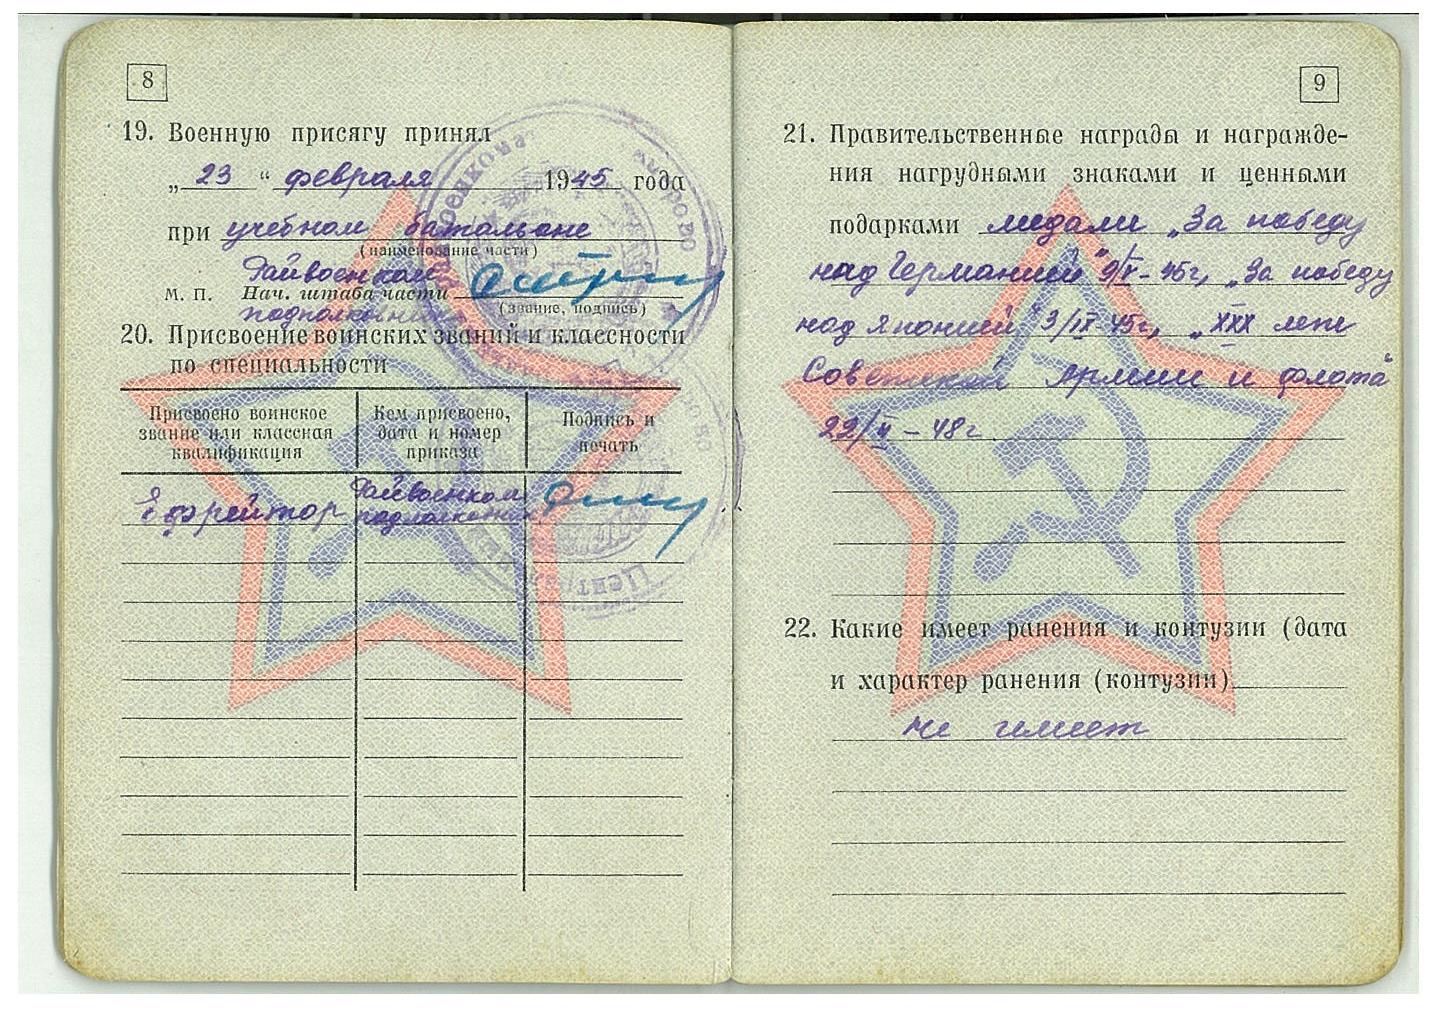 8
19. Военную присягу принял
„ 23 “ февраля 1945 года
при учебном батальоне
(наименование части)
Райвоенком
М. П. Нач. штаба части
(звание, подпись)
подполковник
20. Присвоение воинских званий и классности
по специальности
Присвоено воинское звание или классная квалификация
Кем присвоено, дата и номер приказа
Подпись и печать
Ефрейтор
Райвоенком
подполковник
9
21. Правительственные награды и награжде-
ния нагрудными знаками и ценными
подарками медали „За победу
над Германией" 9/V-45г, „За победу
над Японией" 3/IX-45г, „XXX лет
Советской Армии и флота"
22/II-48г.
22. Какие имеет ранения и контузии (дата
и характер ранения (контузии)
не имеет